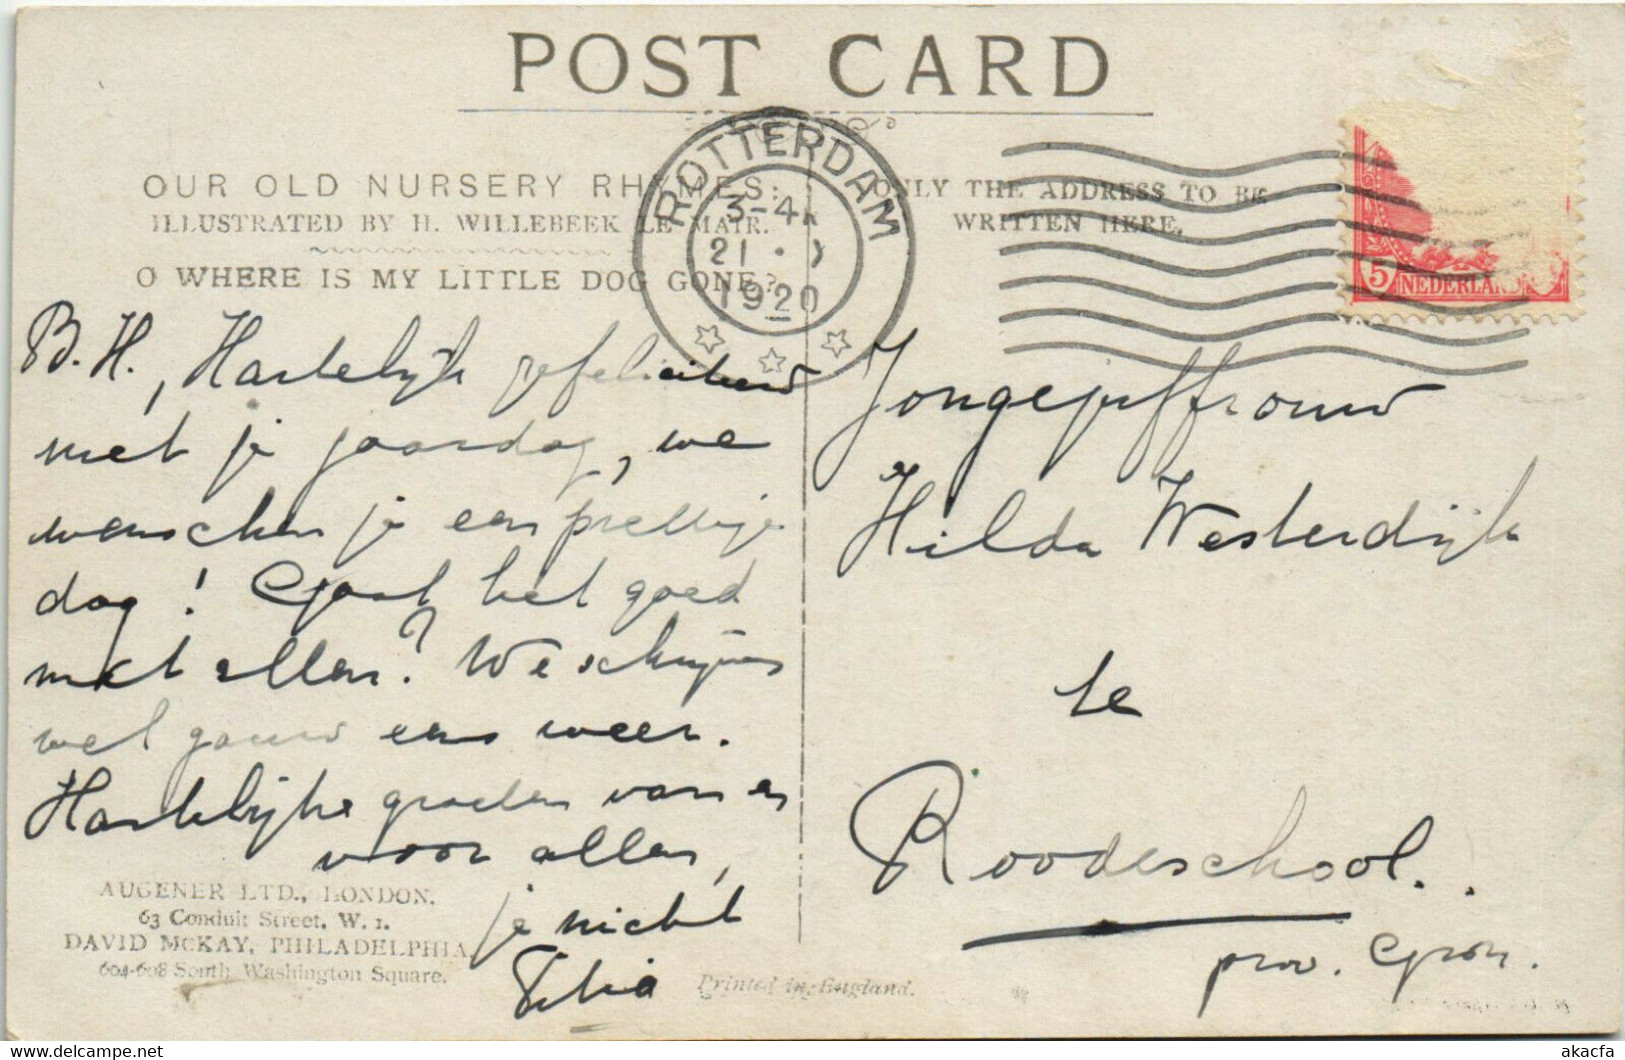 POST CARD
OUR OLD NURSERY RHYMES:
ILLUSTRATED BY H. WILLEBEEK LE MAIR.
O WHERE IS MY LITTLE DOG GONE?
ONLY THE ADDRESS TO BE
WRITTEN HERE.
ROTTERDAM
3-4
21
1920
5 NEDERLAND
B.H., Hartelijk gefeliciteerd
met je jaardag, we
wenschen je een prettige
dag! Gaat het goed
met allen? We schrijven
wel gauw eens weer.
Hartelijke groeten van en
voor allen,
je nicht
Jongejuffrouw
Hilda Westerdijk
te
Roodeschool.
prov. Gron.
AUGENER LTD., LONDON.
63 Conduit Street, W. 1.
DAVID MCKAY, PHILADELPHIA
604-608 South Washington Square.
Printed in England.
akacfa